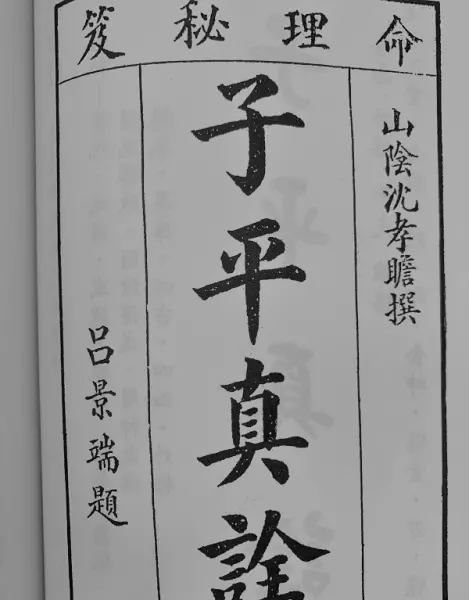 命理秘笈
山陰沈孝瞻撰
子平真詮
吕景端題